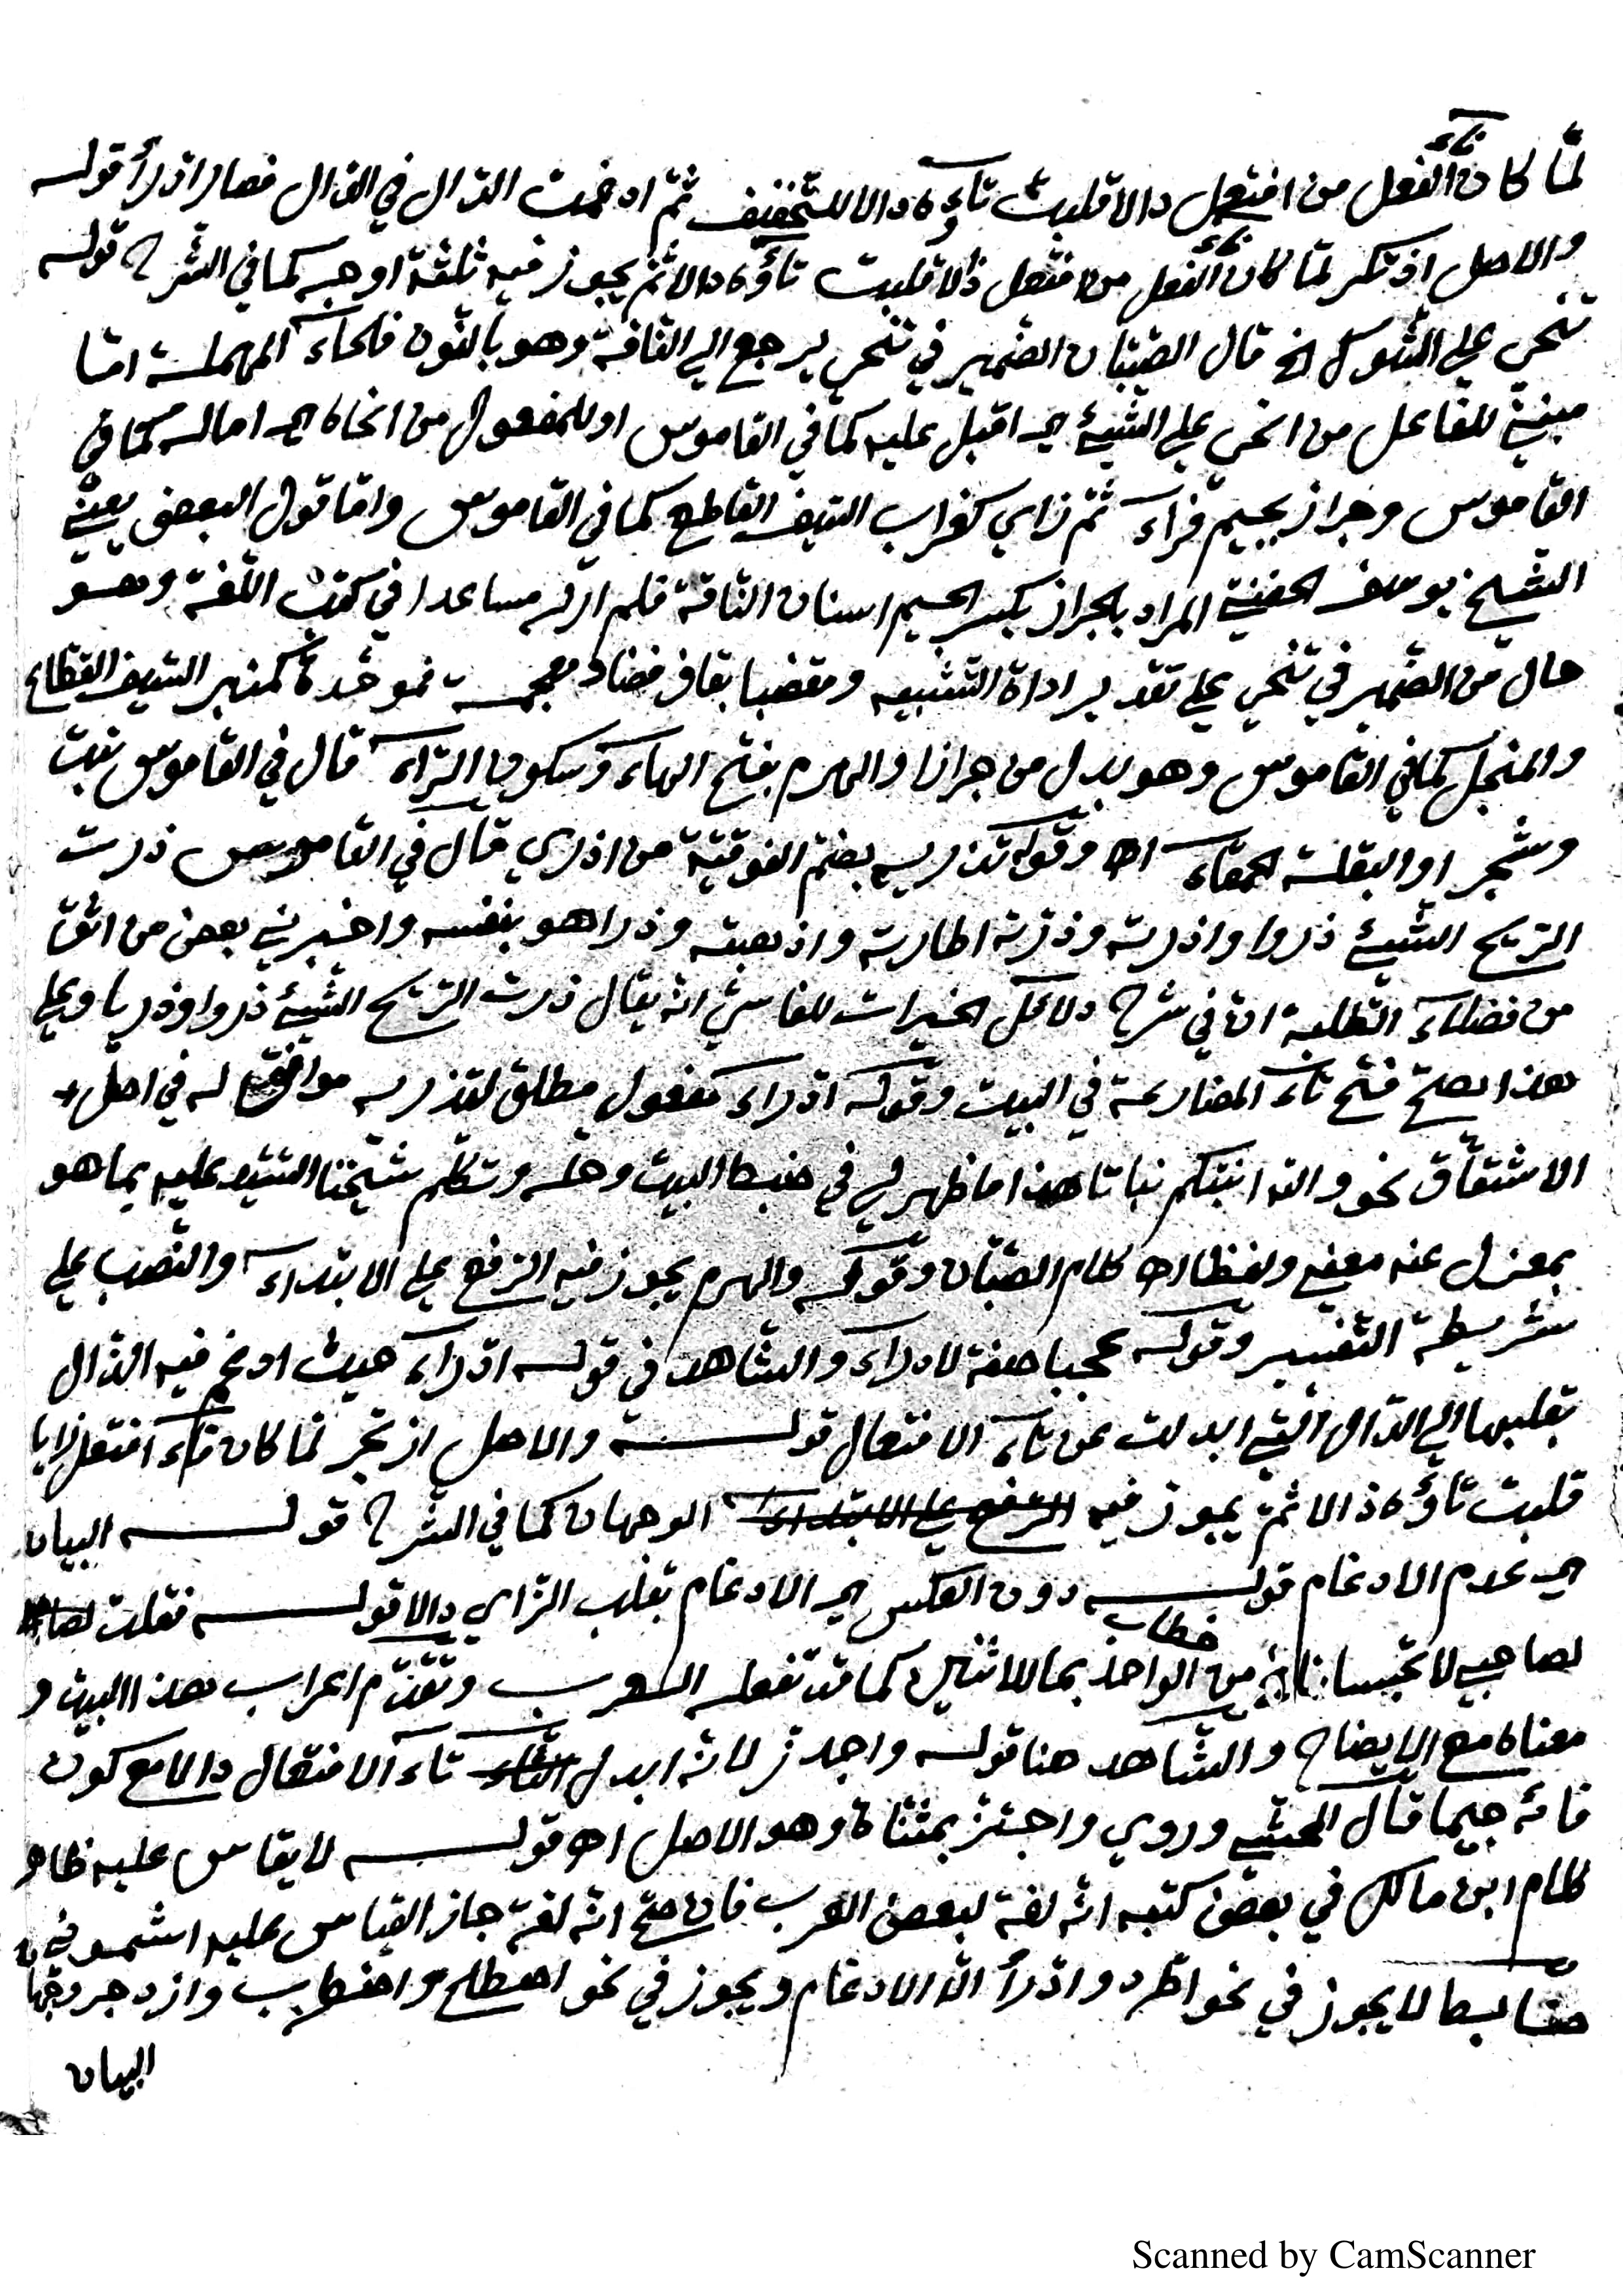 لمّا كان فاء الفعل من افتعل دالا قلبت تاؤه دالا للتخفيف ثمّ ادغمت الدّال في الدّال فصار ادّرأ قوله
والاصل اذتكر لمّا كان فاء الفعل من افتعل ذالا قلبت تاؤه دالا ثمّ يجوز فيه ثلثة اوجه كما في الشّرح قوله
تنحي علي الشّوك الخ قال الصّبّان الضّمير في تنحي يرجع الي النّاقة وهو بالنّون فالحاء المهملة امّا
مبنيّ للفاعل من انحي علي الشّيئ اي اقبل عليه كما في القاموس او للمفعول من انحاه اي اماله كما في
القاموس وجراز بجيم فراء ثمّ زاي كغراب السّيف القاطع كما في القاموس وامّا قول البعض يعني
الشّيخ يوسف الحفنيّ المراد بالجراز بكسر الجيم اسنان النّاقة فلم ار له مساعدا في كتب اللّغة وهو
حال من الضّمير في تنحي علي تقدير اداة التّشبيه ومقضبا بقاف فضاد معجمة فموحّدة كمنبر السّيف القطّاع
والمنجل كما في القاموس وهو بدل من جرازا والهرم بفتح الهاء وسكون الرّاء قال في القاموس نبت
وشجر او البقلة الحمقاء اه وقوله تذريه بضمّ الفوقيّة من اذري قال في القاموس ذرت
الرّيح الشّيئ ذروا واذرته وذرّته اطارته واذهبته وذرا هو بنفسه واخبرني بعض من اثق
من فضلاء الطّلبة ان في شرح دلائل الخيرات للفاسيّ انّه يقال ذرت الرّيح الشّيئ ذروا وذريا وعلي
هذا يصحّ فتح تاء المضارعة في البيت وقوله اذدراء مفعول مطلق لتذريه موافق له في اصل
الاشتقاق نحو والله انبتكم نباتا هذا ما ظهر لي في ضبط البيت وحلّه وتكلّم شيخنا السّيّد عليه بما هو
بمعزل عنه معني ولفظا اه كلام الصّبّان وقوله والهرم يجوز فيه الرّفع علي الابتداء والنّصب علي
شريطة التّفسير وقوله عجبا صفة لادراء والشّاهد في قوله اذدراء حيث ادغم فيه الذّال
بقلبها الي الدّال الّتي ابدلت عن تاء الافتعال قوله والاصل ازتجر لمّا كان فاء افتعل زايا
قلبت تاؤه دالا ثمّ يجوز فيه الرّفع علي الابتداء الوجهان كما في الشّرح قوله البيان
اي عدم الادغام قوله دون العكس اي الادغام بقلب الزّاي دالا قوله فقلت
لصاحبي لا تحبسانا خطاب من الواحد بما للاثنين كما قد تفعله العرب وتقدّم اعراب هذا البيت و
معناه مع الايضاح والشّاهد هنا قوله واجدزّ لانّه ابدل تاء الافتعال دالا مع كون
فائه جيما قال المحشّي وروي واجتزّ بمثنّاة وهو الاصل اه قوله لا يقاس عليه ظاهر
كلام ابن مالك في بعض كتبه انّه لغة لبعض العرب فان صحّ انّه لغة جاز القياس عليه اشموني
ضابط لا يجوز في نحو اطّرد وادّرأ الّا الادغام ويجوز في نحو اصطلح واضطرب وازدجر وجهان
البيان
Scanned by CamScanner